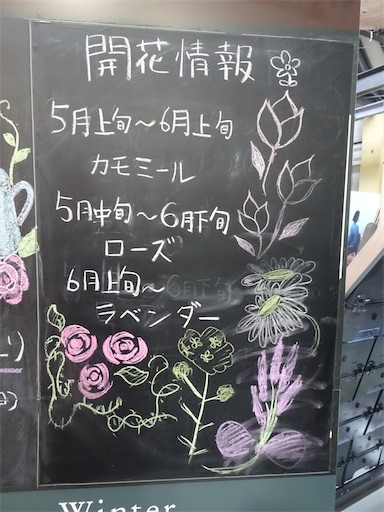 開花情報
5月上旬～6月上旬
カモミール
5月中旬～6月下旬
ローズ
6月上旬～
ラベンダー
Winter